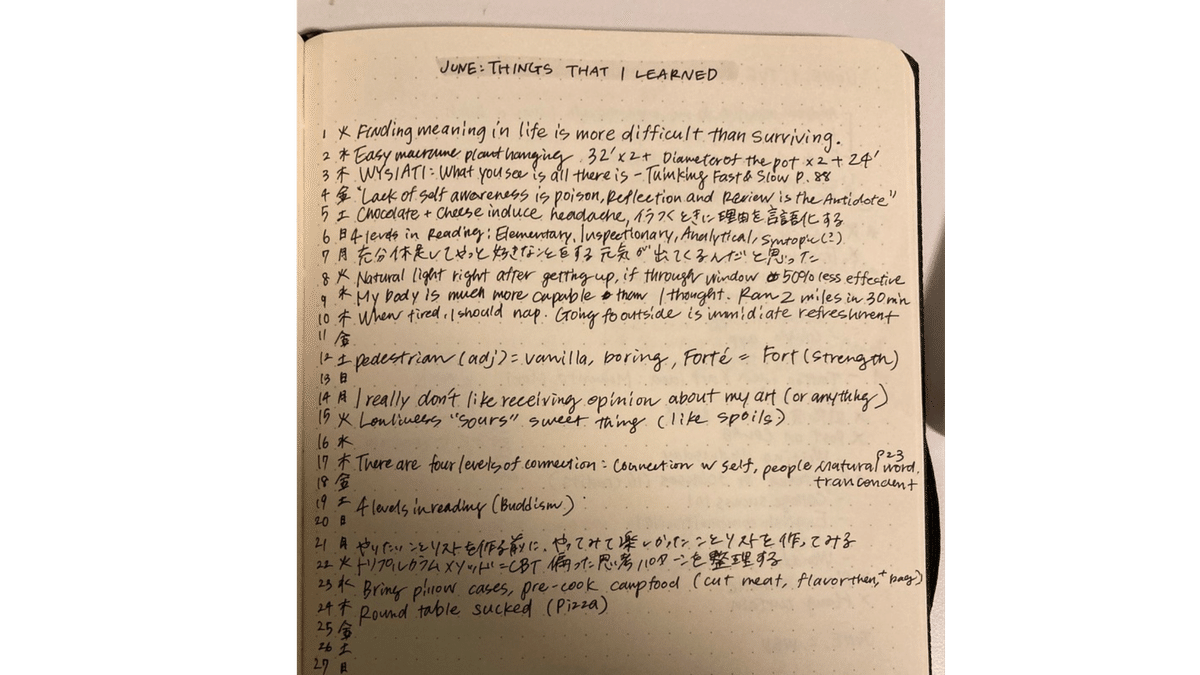 JUNE: THINGS THAT I LEARNED
1 火 Finding meaning in life is more difficult than surviving.
2 水 Easy macrame plant hanging 32' x2 + Diameter of the pot x2 + 24'
3 木 WYSIATI: What you see is all there is - Thinking Fast & Slow P. 88
4 金 "Lack of self awareness is poison, Reflection and Review is the Antidote"
5 土 Chocolate + cheese induce headache, イラつくときに理由を言語化する
6 日 4 levels in Reading: Elementary, Inspectionary, Analytical, Syntopic (?)
7 月 充分休足してやっと好きなことをする元気が出てくるんだと思った
8 火 Natural light right after getting up, if through window 50% less effective
9 水 My body is much more capable than I thought. Ran 2 miles in 30 min
10 木 When tired, I should nap. Going to outside is immidiate refreshment
11 金
12 土 pedestrian (adj) = vanilla, boring, Forté = Fort (strength)
13 日
14 月 I really don't like receiving opinion about my art (or anything)
15 火 Lonliness "sours" sweet thing (like spoils)
16 水
17 木 There are four levels of connection: connection w self, people, natural word, P23
18 金 trancendent
19 土 4 levels in reading (Buddism)
20 日
21 月 やりたいことリストを作る前に、やってみて楽しかったことリストを作ってみる
22 火 トリプルカラムメソッド=CBT 偏った思考パターンを整理する
23 水 Bring pillow cases, pre-cook campfood (cut meat, flavor them, + bag)
24 木 Round table sucked (Pizza)
25 金
26 土
27 日